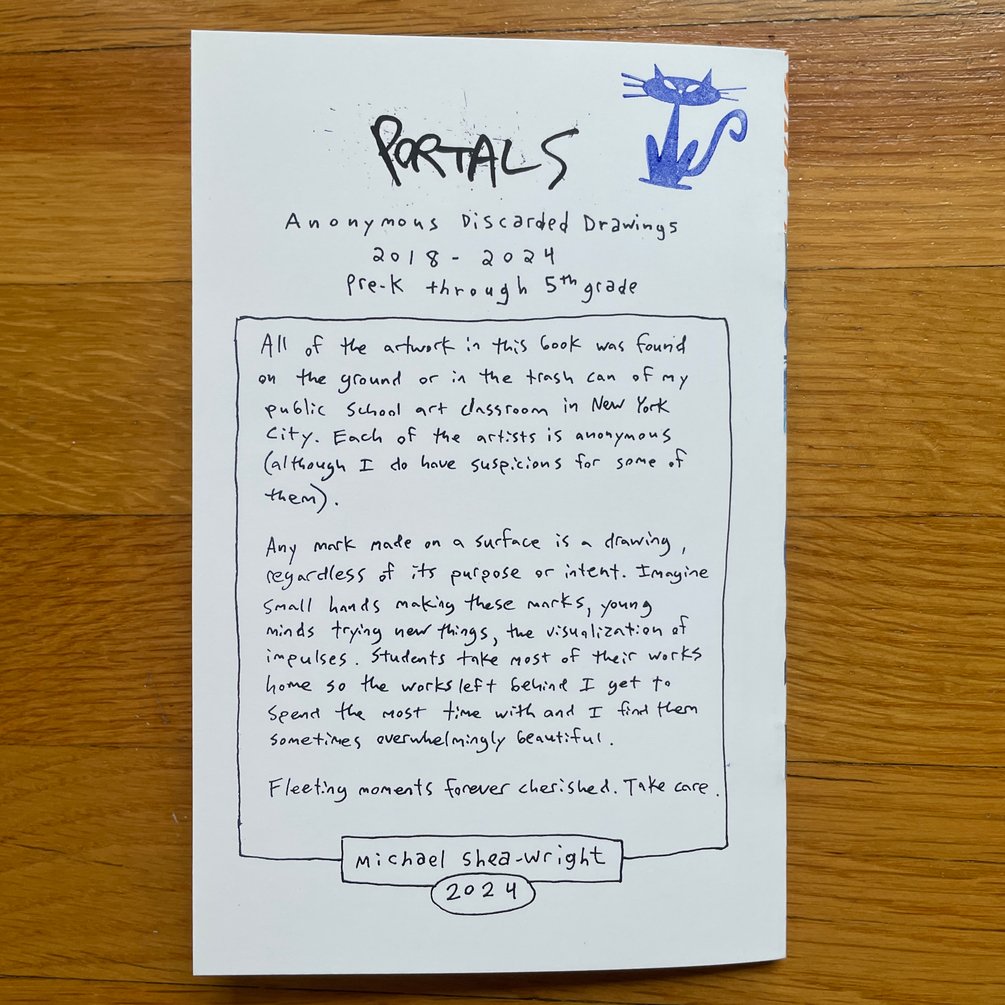 PORTALS
Anonymous Discarded Drawings
2018 - 2024
Pre-K through 5th grade
All of the artwork in this book was found
on the ground or in the trash can of my
public school art classroom in New York
City. Each of the artists is anonymous
(although I do have suspicions for some of
them).
Any mark made on a surface is a drawing,
regardless of its purpose or intent. Imagine
small hands making these marks, young
minds trying new things, the visualization of
impulses. Students take most of their works
home so the works left behind I get to
spend the most time with and I find them
sometimes overwhelmingly beautiful.
Fleeting moments forever cherished. Take care.
Michael Shea-Wright
2024